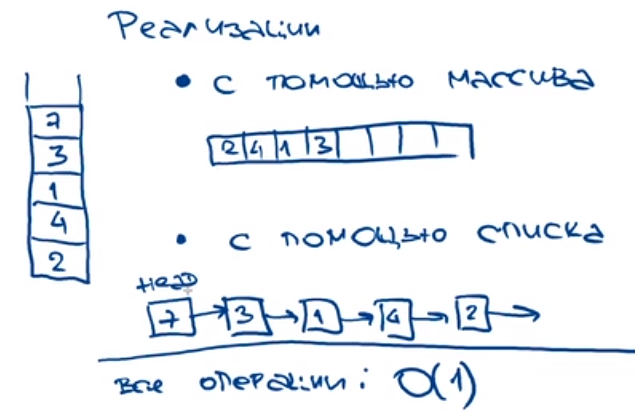 Реализации
• с помощью массива
7
3
1
4
2
2 4 1 3
• с помощью списка
Head
7 → 3 → 1 → 4 → 2 →
все операции: O(1)